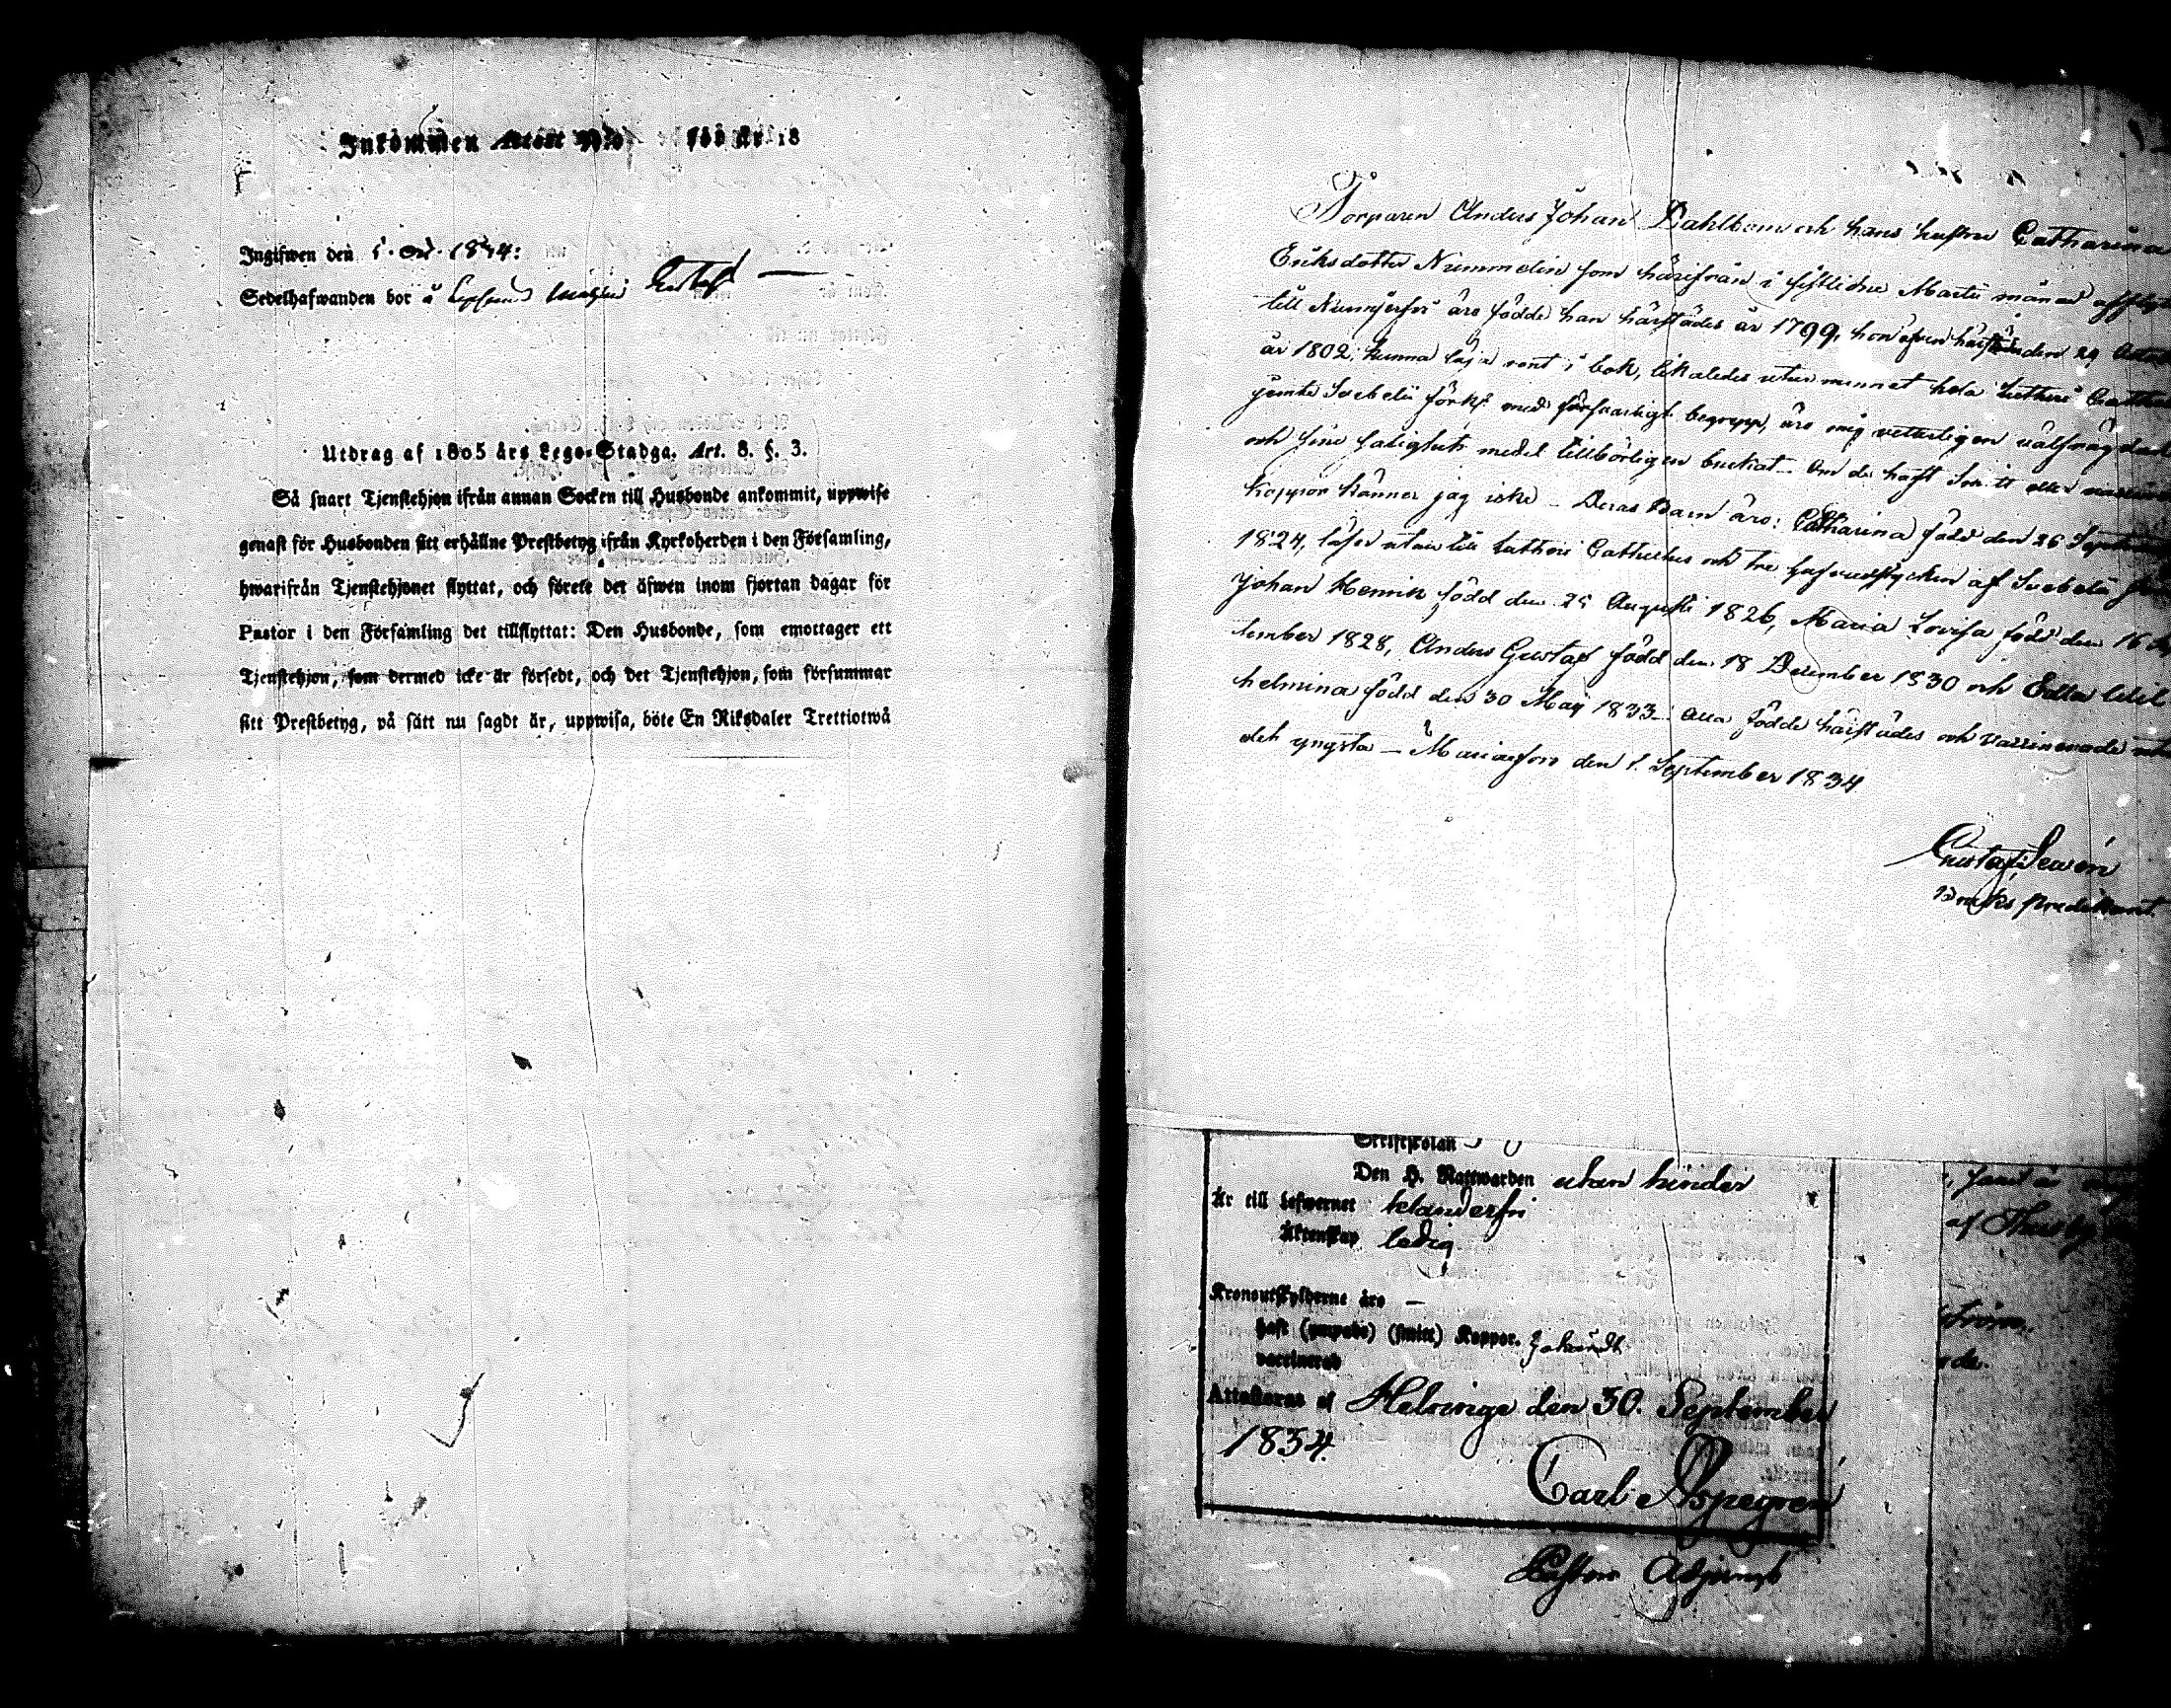 Inkommen Attest N:o för år 18
Ingifwen den 5. Oct. 1834:
Sedelhafwanden bor å
Utdrag af 1805 års Lego-Stadga. Art. 8. §. 3.
Så snart Tjenstehjon ifrån annan Socken till Husbonde ankommit, uppwise
genast för Husbonden sitt erhållne Prestbetyg ifrån Kyrkoherden i den Församling,
hwarifrån Tjenstehjonet flyttat, och förete det äfwen inom fjortan dagar för
Pastor i den Församling det tillflyttat: Den Husbonde, som emottager ett
Tjenstehjon, som dermed icke är försedt, och det Tjenstehjon, som försummar
sitt Prestbetyg, på sätt nu sagdt är, uppwisa, böte En Riksdaler Trettiotwå
Torparen Anders Johan Dahlbom och hans hustru Catharina
Eriksdotter Nummelin som härifrån i sistledne Martii månad
till Nummjerfvi äro födde han härstädes år 1799, hon äfven den 29
år 1802; kunna läsa rent i bok, likaledes utur minnet hela Lutheri
jemte Svebelii förkl. med försvarligt begrepp, äro mig vetterligen välfrägdade
och sine salighets medel tillbörligen brukat. Om de haft eller
koppor känner jag icke – Deras Barn äro: Catharina född den 26 September
1824, läser utan till Lutheri Catheches och tre hufvudstycken af Svebelii
Johan Henrik född den 25 Augusti 1826, Maria Lovisa född den 16
tember 1828, Anders Gustaf född den 18 December 1830 och Edla Wil
helmina född den 30 Maij 1833 – alla födde härstädes och vaccinerade
det yngsta – Mariaefors den 1. September 1834
Gustaf
Bruks predikant.
Skriftskolan
Den H. Nattwarden utan hinder
Är till Lefwernet klanderfri
Äktenskap ledig
Kronoutskylderne äro —
haft (ympade) (smitt) Koppor.
vaccinerad
Attesteras af Helsinge den 30. September
1834.
Carl Aspegren
Pastors Adjunct
af Thusby